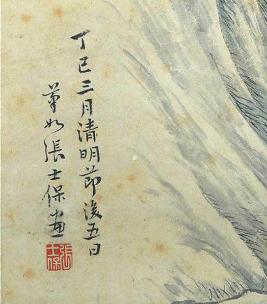 丁巳三月清明節後五日
菊如張士保畫
張士保